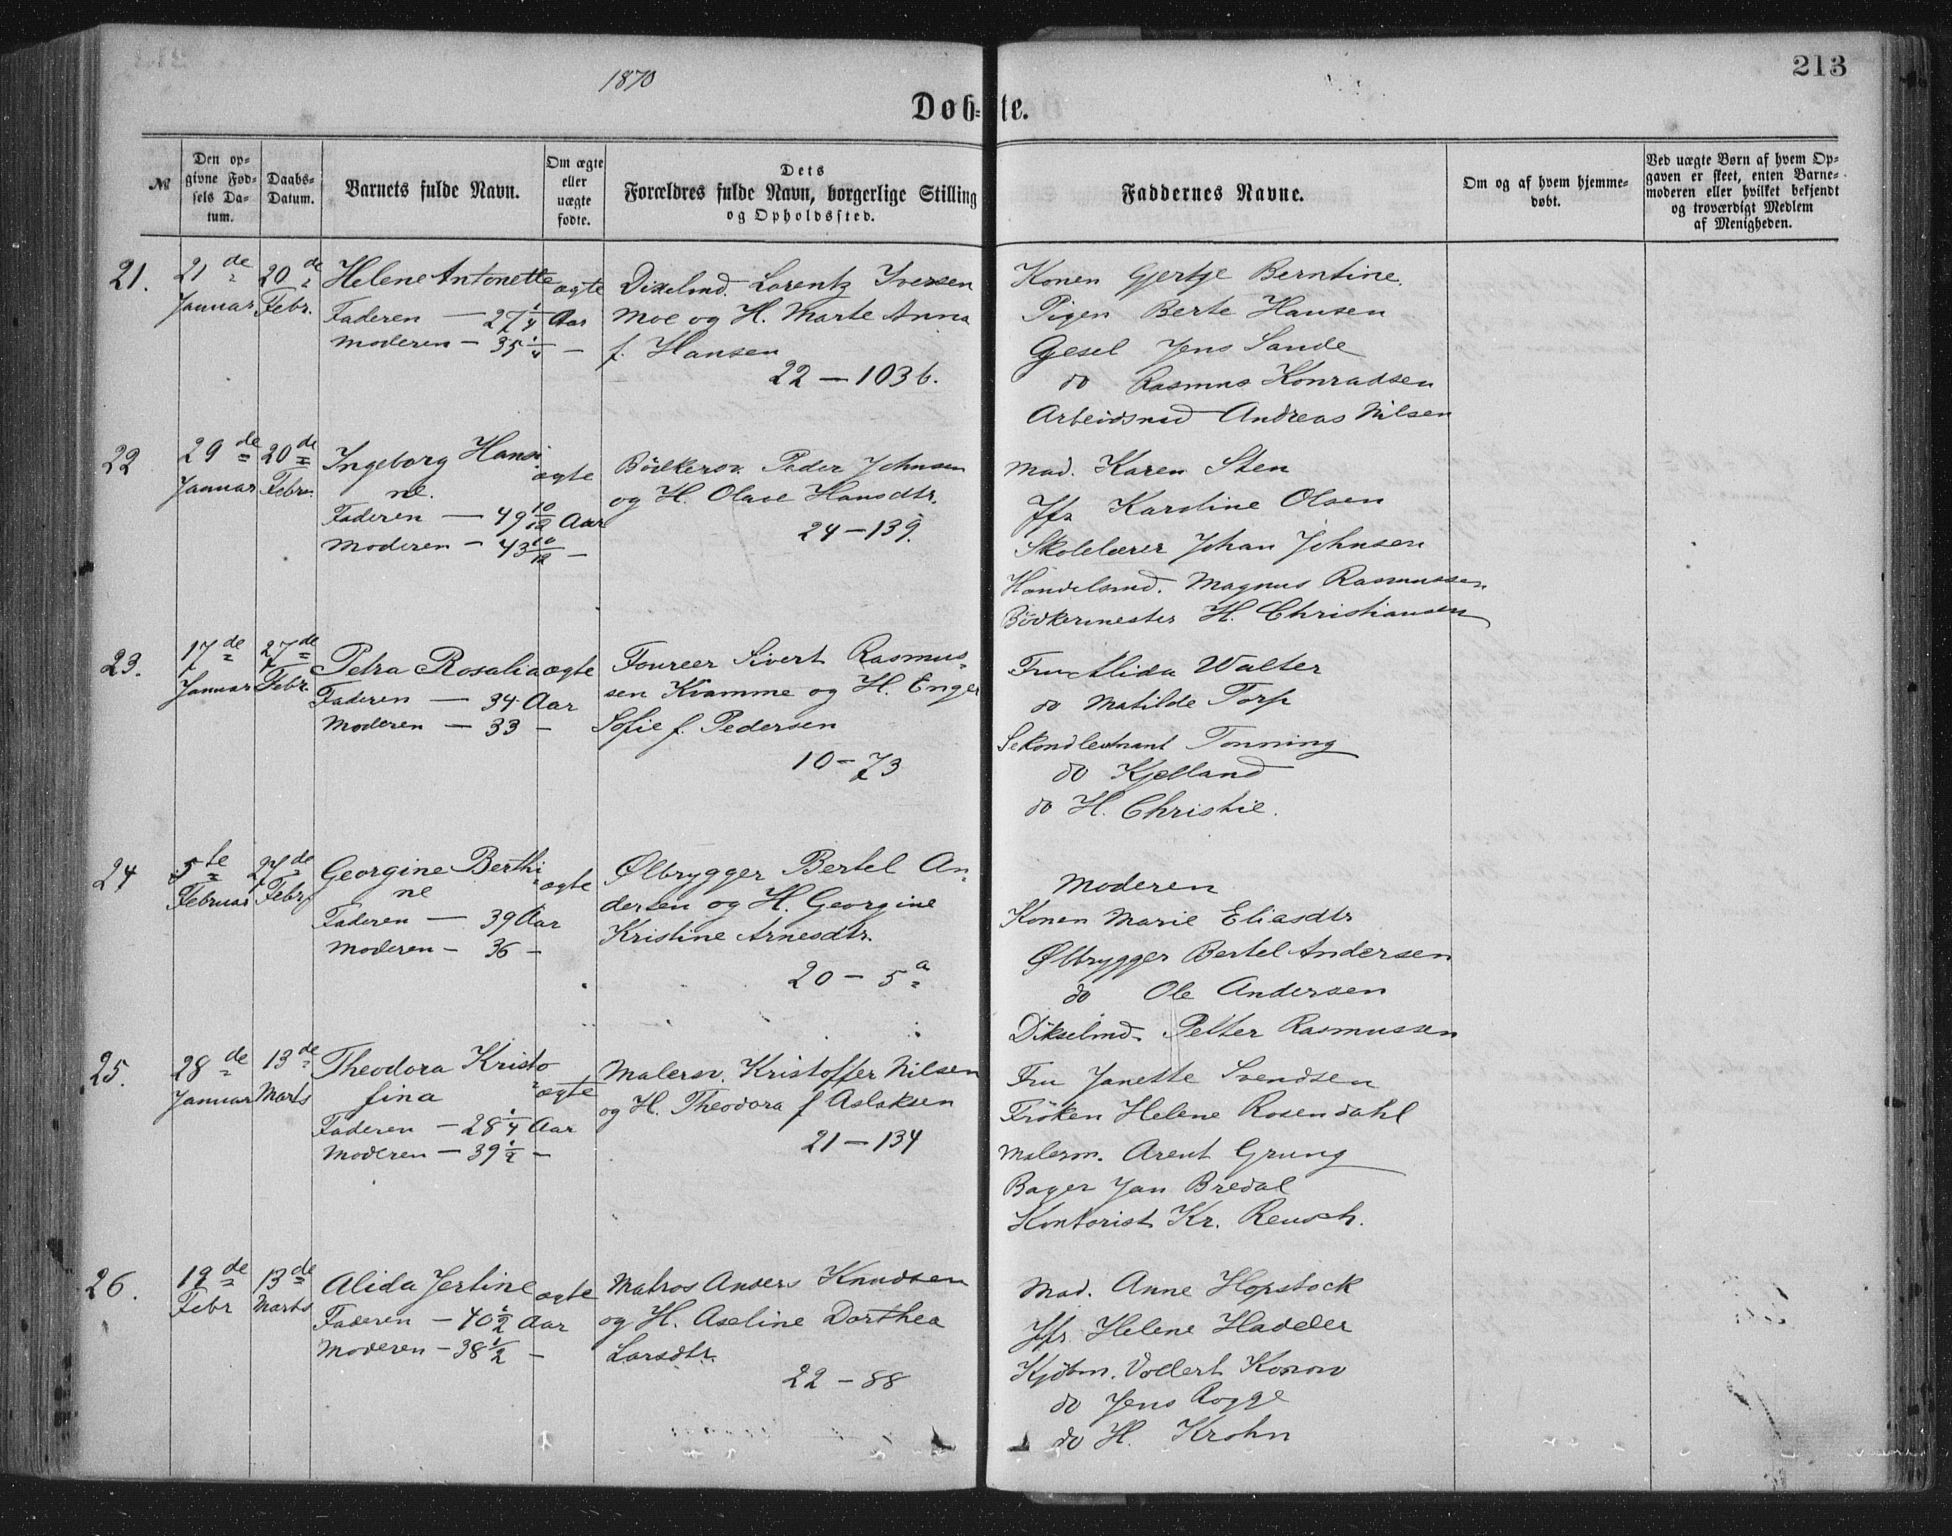 1870
213
Døb-te.
№
Den op-
givne Fød-
sels Da-
tum.
Daabs-
Datum.
Barnets fulde Navn.
Om ægte
eller
uægte
fødte.
Dets
Forældres fulde Navn, borgerlige Stilling
og Opholdssted.
Faddernes Navne.
Om og af hvem hjemme-
døbt.
Ved uægte Børn af hvem Op-
gaven er skeet, enten Barne-
moderen eller hvilket bekjendt
og troværdigt Medlem
af Menigheden.
21.
21de
Januar
20de
Febr.
Helene Antonette
Faderen — 27 1/4 Aar
Moderen — 35 1/4 —
ægte
Dixelmd. Lorentz Iversen
Moe og H. Marte Anna
f. Hansen
22 — 103 b.
Konen Gjertje Berntine.
Pigen Berte Hansen
Gesel Jens Sande
do Rasmus Konradsen
Arbeidsmd Andreas Nilsen
22
29de
Januar
20de
Febr.
Ingeborg Hansi-
ne.
Faderen — 49 10/12 Aar
Moderen — 43 10/12 —
ægte
Bødkersv. Peder Johnsen
og H. Olave Hansdtr.
24 — 139.
Mad. Karen Sten
Jfr Karoline Olsen
Skolelærer Johan Johnsen
Handelsmd. Magnus Rasmussen
Bødkermester H. Christiansen
23.
17de
Januar
27de
Febr.
Petra Rosalia
Faderen — 34 Aar
Moderen — 33 —
ægte
Foureer Sivert Rasmus-
sen Kramme og H. Enger
Sofie f. Pedersen
10 — 73
Fru Alida Walter
do Matilde Torp
Sekondleitnant Tonning
do Kjelland
do H. Christie.
24
5te
Februar
27de
Febr.
Georgine Berthi-
ne
Faderen — 39 Aar
Moderen — 36 —
ægte
Ølbrygger Bertel An-
dersen og H. Georgine
Kristine Arnesdtr.
20 — 5a
Moderen
Konen Marie Eliasdtr
Ølbrygger Bertel Andersen
do Ole Andersen
Dikselmd. Petter Rasmussen
25.
28de
Januar
13de
Marts
Theodora Kristo-
fina
Faderen — 28 1/4 Aar
Moderen — 39 1/2 —
ægte
Malersv. Kristoffer Nilsen
og H. Theodora f Aslaksen
21 — 134
Fru Janette Svendsen
Frøken Helene Rosendahl
Malerm. Arent Grung
Bager Jan Bredal
Kontorist Kr. Reusch.
26.
19de
Febr
13de
Marts
Alida Jertine
Faderen — 40 1/2 Aar
Moderen — 38 1/2 —
ægte
Matros Anders Knudsen
og H. Aseline Dorthea
Larsdtr.
22 — 88
Mad. Anne Hopstock
Jfr Helene Hadeler
Kjøbm. Vollert Konow
do Jens Rogge
do H. Krohn